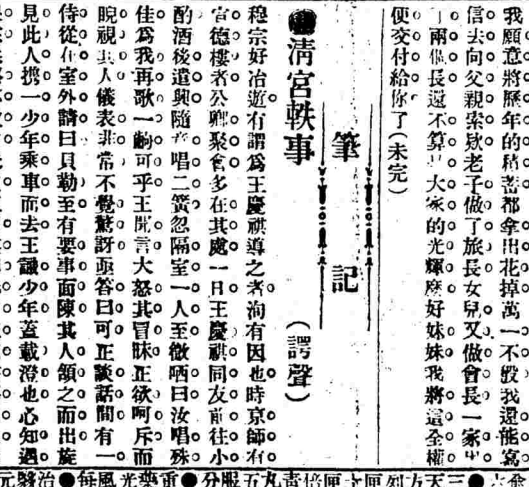 我願意將歷年的積蓄都拿出花掉萬一不彀我還能寫
信去向父親索欵老子做了旅長女兒又做會長一家出
了兩個長還不算是大家的光輝麽好妹妹我將這全權
便交付給你了(未完)
筆記
●清宮軼事 (諤聲)
穆宗好冶遊有謂爲王慶祺導之者洵有因也時京師有
宮德樓者公卿聚會多在其處一日王慶祺同友前往小
酌酒後遣興隨意唱二簧忽隔室一人至微哂曰汝唱殊
佳爲我再歌一齣可乎王聞言大怒其冒昧正欲呵斥而
睨視其人儀表非常不覺驚訝亟答曰可正談話間有一
侍從在室外請曰貝勒至有要事面陳其人頷之而出旋
見此人攜一少年乘車而去王識少年蓋載澄也心知遇